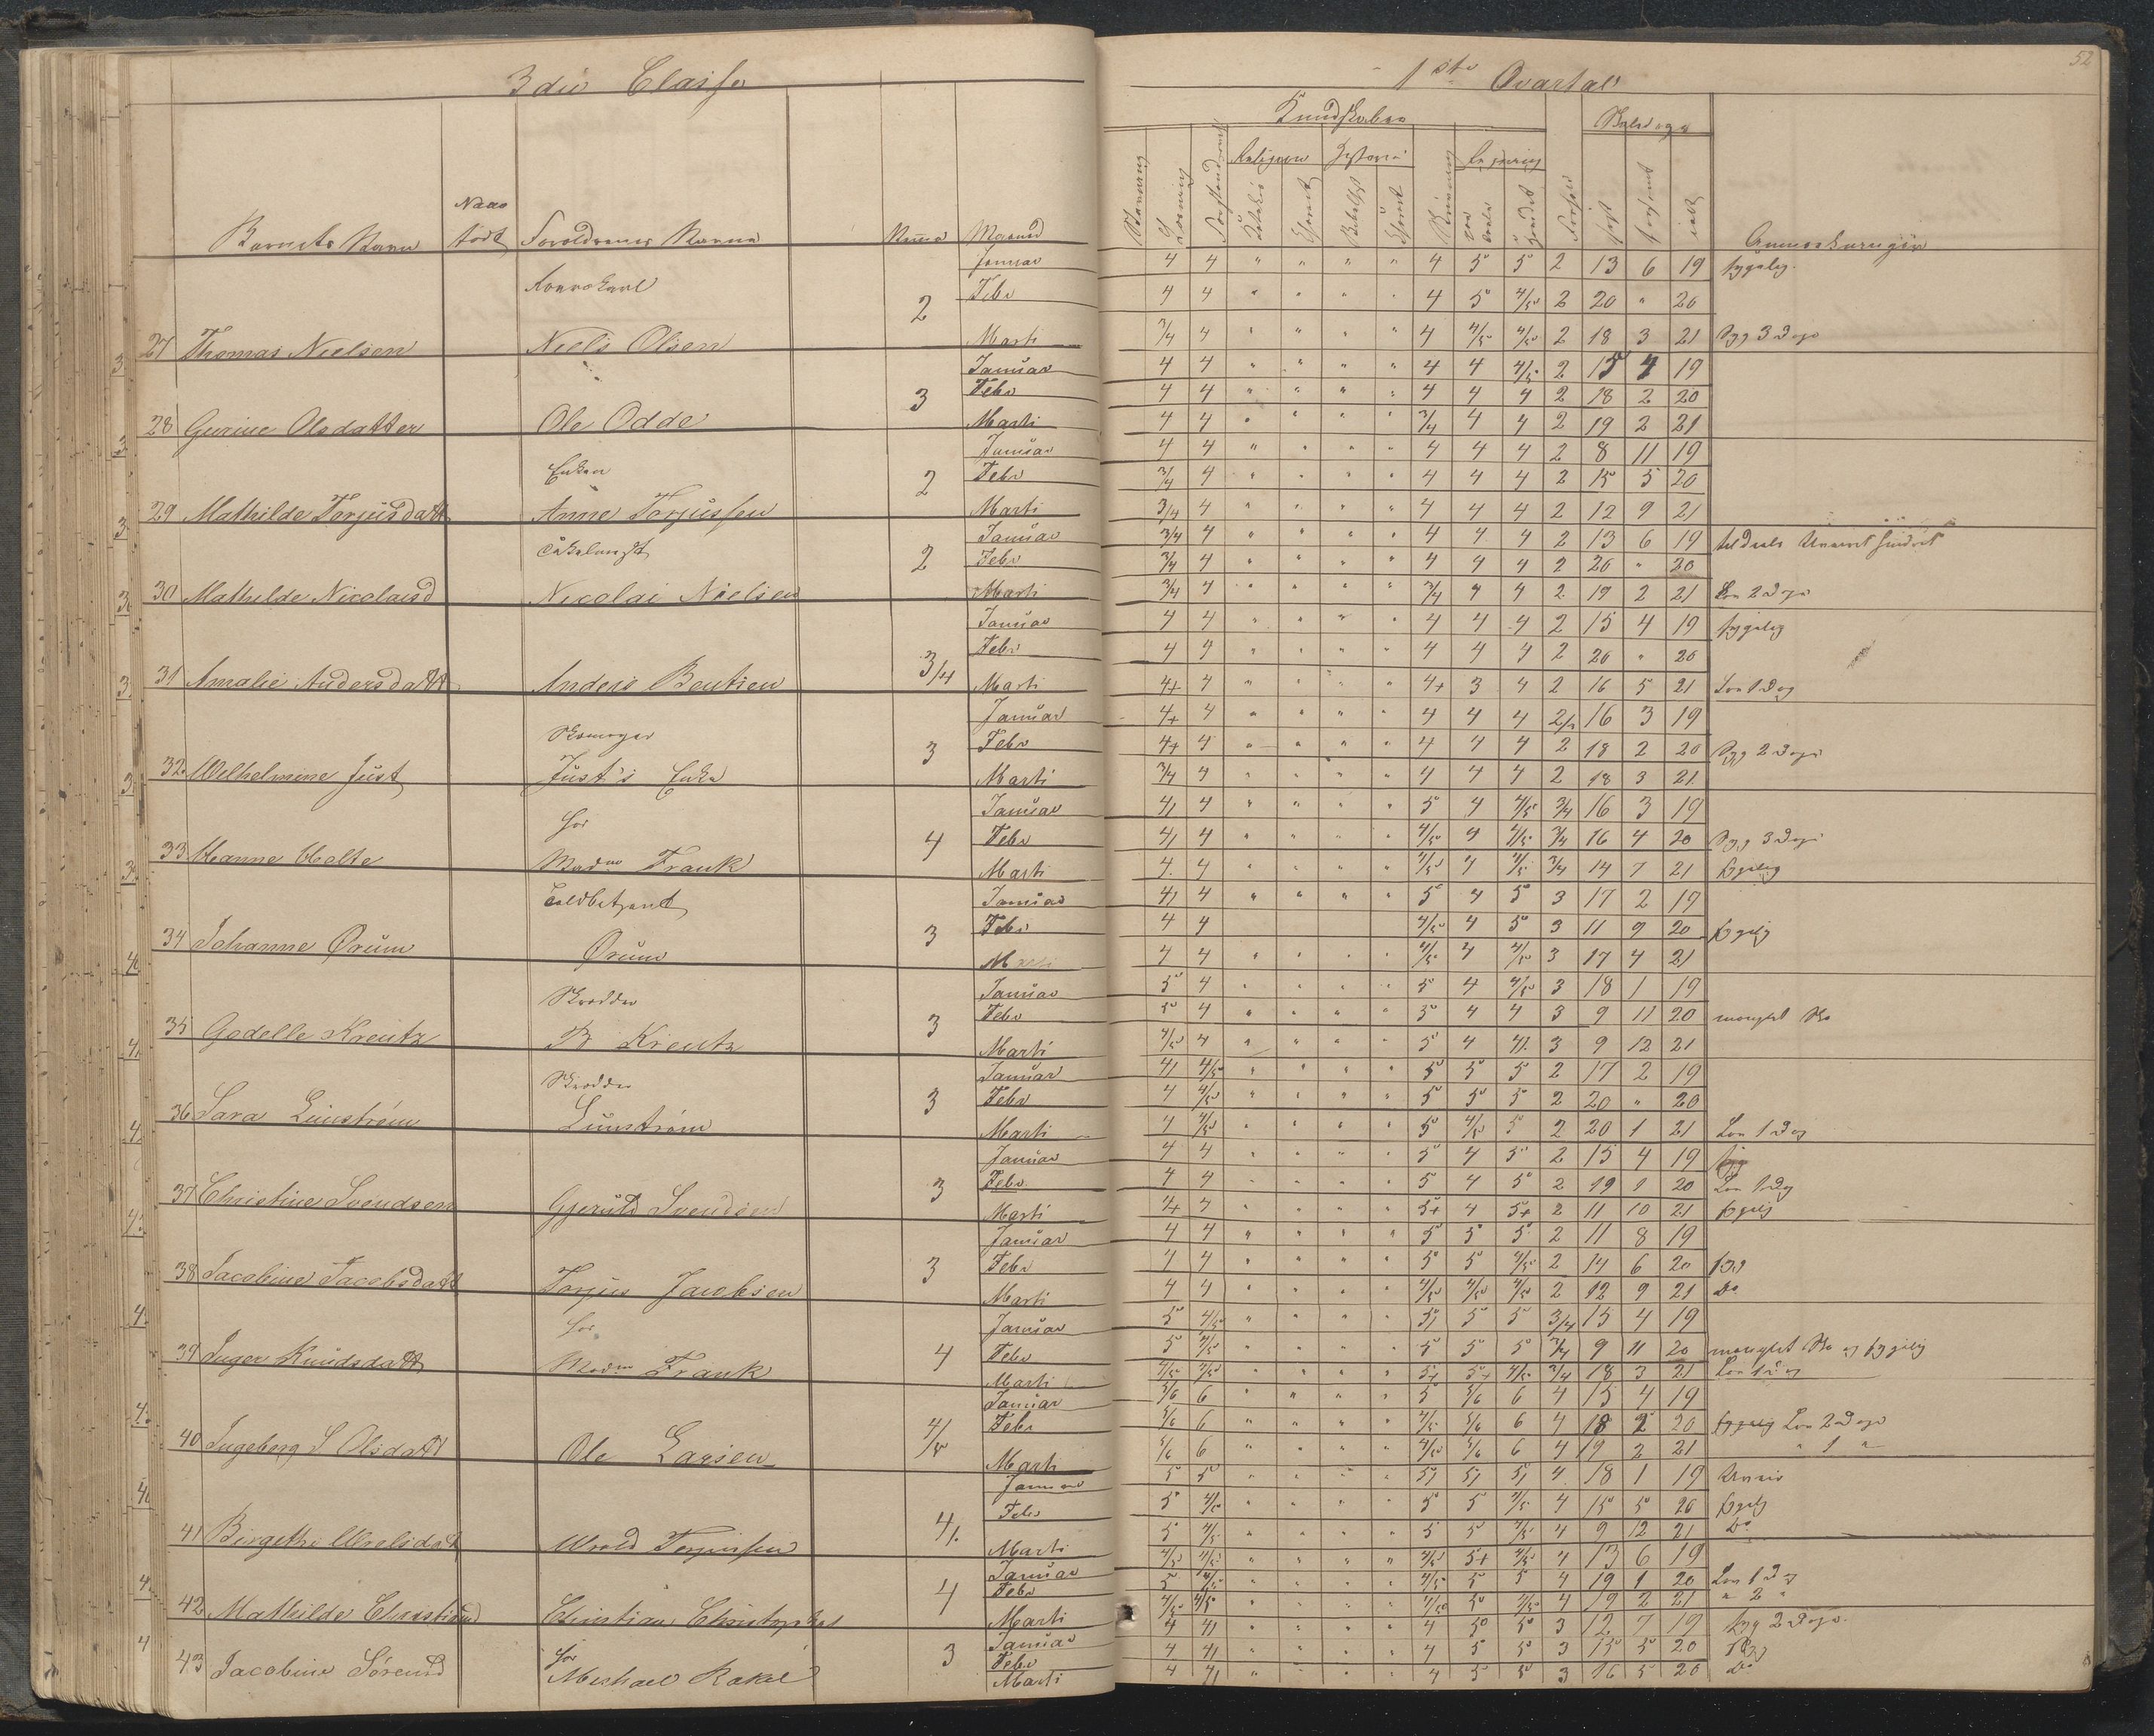 3die Classe
1ste Qvartal
52
Kundskaber
Skoledage
Religion Historie
Barnets Navn Naar født Forældrenes Navne Maaned
Anmærkninger
Januar 4 4 " " " " 4 5 5 2 13 6 19 sygelig
Febr 4 4 " " " " 4 5 4/5 2 20 " 20
27 Thomas Nielsen Niels Olsen 2 Marti 3/4 4 " " " " 4 4/5 4/5 2 18 3 21 Syg 3 Dage
Januar 4 4 " " " " 4 4 4/5 2 15 4 19
Febr 4 4 " " " " 4 4 4 2 18 2 20
28 Gurine Olsdatter Ole Odde 3 Marti 4 4 " " " " 3/4 4 4 2 19 2 21
Januar 4 4 " " " " 4 4 4 2 8 11 19
Enken Febr 3/4 4 " " " " 4 4 4 2 15 5 20
29 Mathilde Torjusdatt Anne Torjussen 2 Marti 3/4 4 " " " " 4 4 4 2 12 9 21
Januar 3/4 4 " " " " 4 4 4 2 13 6 19
Febr 3/4 4 " " " " 4 4 4 2 20 " 20
30 Mathilde Nicolaisd Nicolai Nielsen 2 Marti 3/4 4 " " " " 3/4 4 4 2 19 2 21 Lov 2 Dage
Januar 4 4 " " " " 4 4 4 2 15 4 19 sygelig
Febr 4 4 " " " " 4 4 4 2 20 " 20
31 Amalie Andersdatt Anders Bentsen 3/4 Marti 4+ 4 " " " " 4+ 3 4 2 16 5 21 Lov 1 Dag
Januar 4+ 4 " " " " 4 4 4 16 3 19
Febr 4+ 4 " " " " 4 4 4 2 18 2 20 Syg 2 Dage
32 Wilhelmine Just Just's Enke 3 Marti 3/4 4 " " " " 4 4 4 2 18 3 21
Januar 4 " " " " 5 4 4/5 3/4 16 3 19
hos Febr 4 " " " " 4/5 4 4/5 3/4 16 4 20 Syg 3 Dage
33 Hanne Holte Madm Frank 4 Marti 4 " " " " 4/5 4 4/5 3/4 14 7 21 sygelig
Toldbetjent Januar 4 " " " " 5 4 5 3 17 2 19
Febr 4 4 4/5 4 5 3 11 9 20 sygelig
34 Johanne Ørum Ørum 3 Marti 4 4 " " " " 4/5 4 4/5 3 17 4 21
Skrædder Januar 5 4 " " " " 5 4 4/5 3 18 1 19
Febr 5 4 " " " " 5 4 4 3 9 11 20 manglet Sko
35 Godelle Kreutz B Kreutz 3 Marti 4/5 4 " " " " 5 4 3 9 12 21
Skrædder Januar 4/5 " " " " 5 5 5 2 17 2 19
Febr 4 4/5 " " " " 5 5 5 2 20 " 20
36 Sara Lunström Lunström 3 Marti 4 4/5 " " " " 5 4/5 5 2 20 1 21 Lov 1 Dag
Januar 4 4 " " " " 5 4 5 2 15 4 19
Febr 4 4 " " " " 5 4 5 2 19 1 20 Lov 1 Dag
37 Christine Svendsen Gjeruld Svendsen 3 Marti 4+ 4 " " " " 5+ 4 5+ 2 11 10 21 sygelig
Januar 4 4 " " " " 5 5 5 2 11 8 19
Febr 4 4 " " " " 5 5 4/5 2 14 6 20
38 Jacobine Jacobsdatt Torjus Jacobsen 3 Marti 4 4 " " " " 4/5 4/5 4/5 2 12 9 21 Do
hos Januar 5 4/5 " " " " 5 5 3/4 15 4 19
Febr 5 4/5 " " " " 5 5 5 3/4 9 11 20 manglet Sko og sygelig
39 Inger Knudsdatt Madm Frank 4 Marti 4/5 4/5 " " " " 5+ 5+ 4/5 3/4 18 3 21 Lov 1 Dag
Januar 5/6 6 " " " " 5 5/6 6 4 15 4 19
Febr 5/6 6 " " " " 4/5 5/6 6 4 18 2 20 Lov 2 Dage
40 Ingeborg S Olsdatt Ole Larsen 4/5 Marti 5/6 6 " " " " 4/5 5/6 6 4 19 2 21 " 1 "
Januar 5 5 " " " " 4 18 1 19
Febr 5 4/5 " " " " 5 5 4/5 4 15 5 20 sygelig
41 Marti 5 4/5 " " " " 5 5 4/5 4 9 12 21 Do
Januar 4/5 4/5 " " " " 4/5 5+ 4/5 4 13 6 19
Febr 5 4/5 " " " " 4/5 5 5 4 19 1 20 Lov 1 Dag
42 Mathilde Christiansd Christian 4 Marti 4/5 4/5 " " " " 4/5 5 4/5 4 19 2 21 " 2 "
Januar 4 " " " " 4 5 5 3 12 7 19 Syg 2 Dage
hos Febr 4 " " " " 4 5 5 3 15 5 20 Syg
43 Jacobine Sörensd Michael Kakel 3 Marti 4 " " " " 4 5 5 3 16 5 20 Do